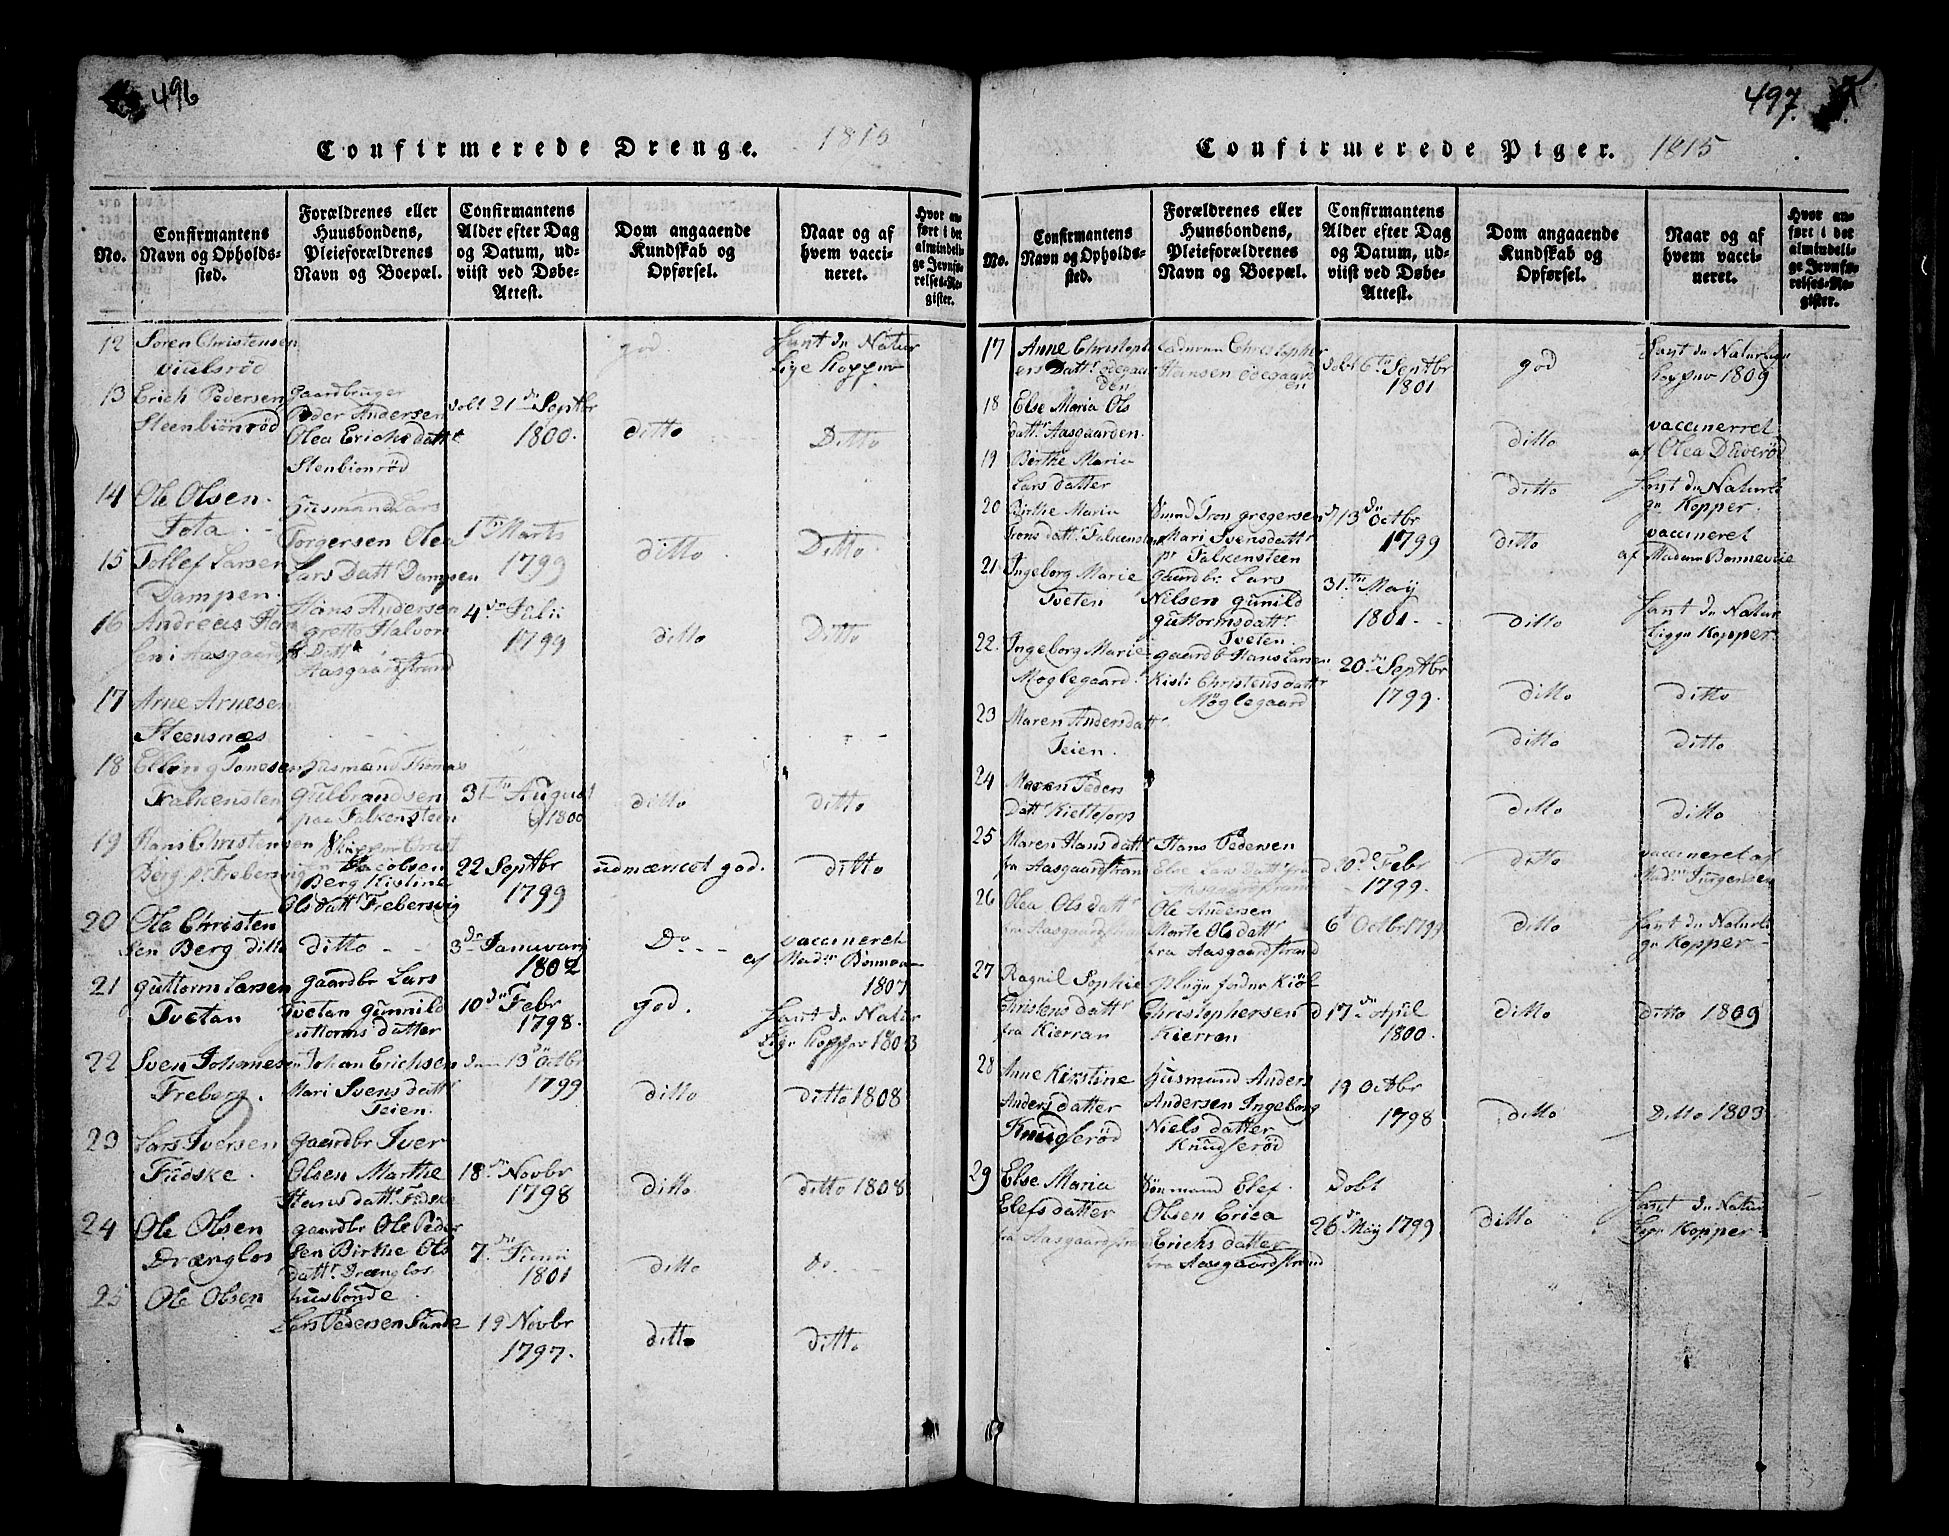 496
Confirmerede Drenge. 1815
No.
Confirmantens
Navn og Opholds-
sted.
Forældrenes eller
Huusbondens,
Pleieforældrenes
Navn og Boepæl.
Confirmantens
Alder efter Dag
og Datum, ud-
viist ved Døbe-
Attest.
Dom angaaende
Kundskab og
Opførsel.
Naar og af
hvem vacci-
neret.
Hvor an-
ført i det
almindeli-
ge Jevnfø-
relses-Re-
gister.
12 Søren Christensen
god
hant de Natur
lige Kopper
13 Erich Pedersen
Steenbiønrød
Gaardbruger
Peder Andersen
Olea Erichsdatt
Stenbionrød
dobt 21 Septbr
1800.
ditto
Ditto
14 Ole Olsen
Tota.
15 Tollef Larsen
Dampen.
Husmand Lars
Torgersen Olea
Lars Datt Dampen
1 Marts
1799
ditto
Ditto
16 Andreas Han
sen i Aasgaard
Hans Andersen
grette Halvor
s Datt
Aasgaardstrand
4 Julii
1799
ditto
Ditto
17 Arne Arnesen
Steensnæs
18 Elling Tomesen
Falkensten
Husmand Thomas
Gulbrandsen
paa Falkensteen
31 August
1800
ditto
ditto
19 Hans Christensen
Berg pr Frebersvig
Skipper Christ
Jacobsen
Berg Kistine
Olsdatt Frebersvig
22 Septbr
1799
udmærcet god.
ditto
20 Ole Christen
sen Berg ditto
ditto
3 Januvari
1802
Do
vaccineret
af Mad Bonneva
1807
21 Guttorm Larsen
Tvetan
gaardbr Lars
Tvetan Gunnild
guttorms datter
10 Febr
1798.
god.
hant de Natur
lige Kopper 1803
22 Sven Johannesen
Freberg.
Johan Erichsen
Mari Svensdatt
Teien.
13 Octbr
1799
ditto
ditto 1808
23 Lars Iversen
Fudske.
gaardbr Iver
Olsen Marthe
Hansdatt Fudske
18 Novbr
1798
ditto
ditto 1808
24 Ole Olsen
Drænglos
gaardbr Ole Peder
sen Birthe Ols
datt Drænglos
7 Juni
1801
ditto
Do
25 Ole Olsen
husbonde
Lars Pedersen Sunde
19 Novbr
1797.
ditto
ditto
497.
Confirmerede Piger. 1815
No.
Confirmantens
Navn og Opholds-
sted.
Forældrenes eller
Huusbondens,
Pleieforældrenes
Navn og Boepæl.
Confirmantens
Alder efter Dag
og Datum, ud-
viist ved Døbe-
Attest.
Dom angaaende
Kundskab og
Opførsel.
Naar og af
hvem vacci-
neret.
Hvor an-
ført i det
almindeli-
ge Jevnfø-
relses-Re-
gister.
17 Anne Christoph
ers Datt ødegaar
den
Christopher
Hansen ødegaard
en
dobt 6 Septbr
1801
god
hant de Naturlige
Kopper 1809
18 Else Maria Ols
datt Aasgaarden.
ditto
vaccinerret
af Olea Duverød
19 Birthe Maria
Lars datter
ditto
hant de Naturli
ge Kopper.
20 Birthe Maria
Trons datt Falkensten
Tron gregersen
Mari Svensdatt
pr Falkensteen
d 13 Octbr
1799
ditto
vaccineret
af Madam Bonnevie
21 Ingeborg Marie
Tveten
gaardbr Lars
Nilsen gunild
guttormsdatt
Tveten.
31 May
1801.
ditto
hant de Natur
ligge Kopper
22. Ingeborg Marie
Møglegaard.
gaardb Hans Larsen
Kisti Christensdatt
Møglegaard
20 Septbr
1799.
ditto
ditto
23 Maren Andersdatt
Teien.
ditto
ditto
24 Maren Peders
Datt Kiettesorp
ditto
ditto
25 Maren Hansdatt
fra Aasgaardstran
Hans Pedersen
Else Larsdatt fra
Aasgaardstrand
d 20 Febr
1799.
ditto
vaccineret af
Mad Jurgensen
26 Olea Olsdatt
fra Aasgaardstrand
Ole Andersen
Marte Olsdatt
fra Aasgaardstrand
6 Octbr 1799
ditto
hant de Naturli
ge Kopper
27 Ragnil Sophie
Christens datt
fra Kierran
Pleye fader Kiøl
Christophersen
Kierran
d 17 April
1800.
ditto
ditto 1809
28 Anne Kirstine
Anders datter
Knugserød
Husmand Anders
Andersen Ingeborg
Niels datter
Knugserød
19 Octbr
1798
ditto
Ditto 1803
29 Else Maria
Elefs datter
fra Aasgaardstrand
Elef
Olsen Erica
Erichs datter
fra Aasgaardstrand
Dobt
26 May 1799
ditto
hant de Natur
Kopper